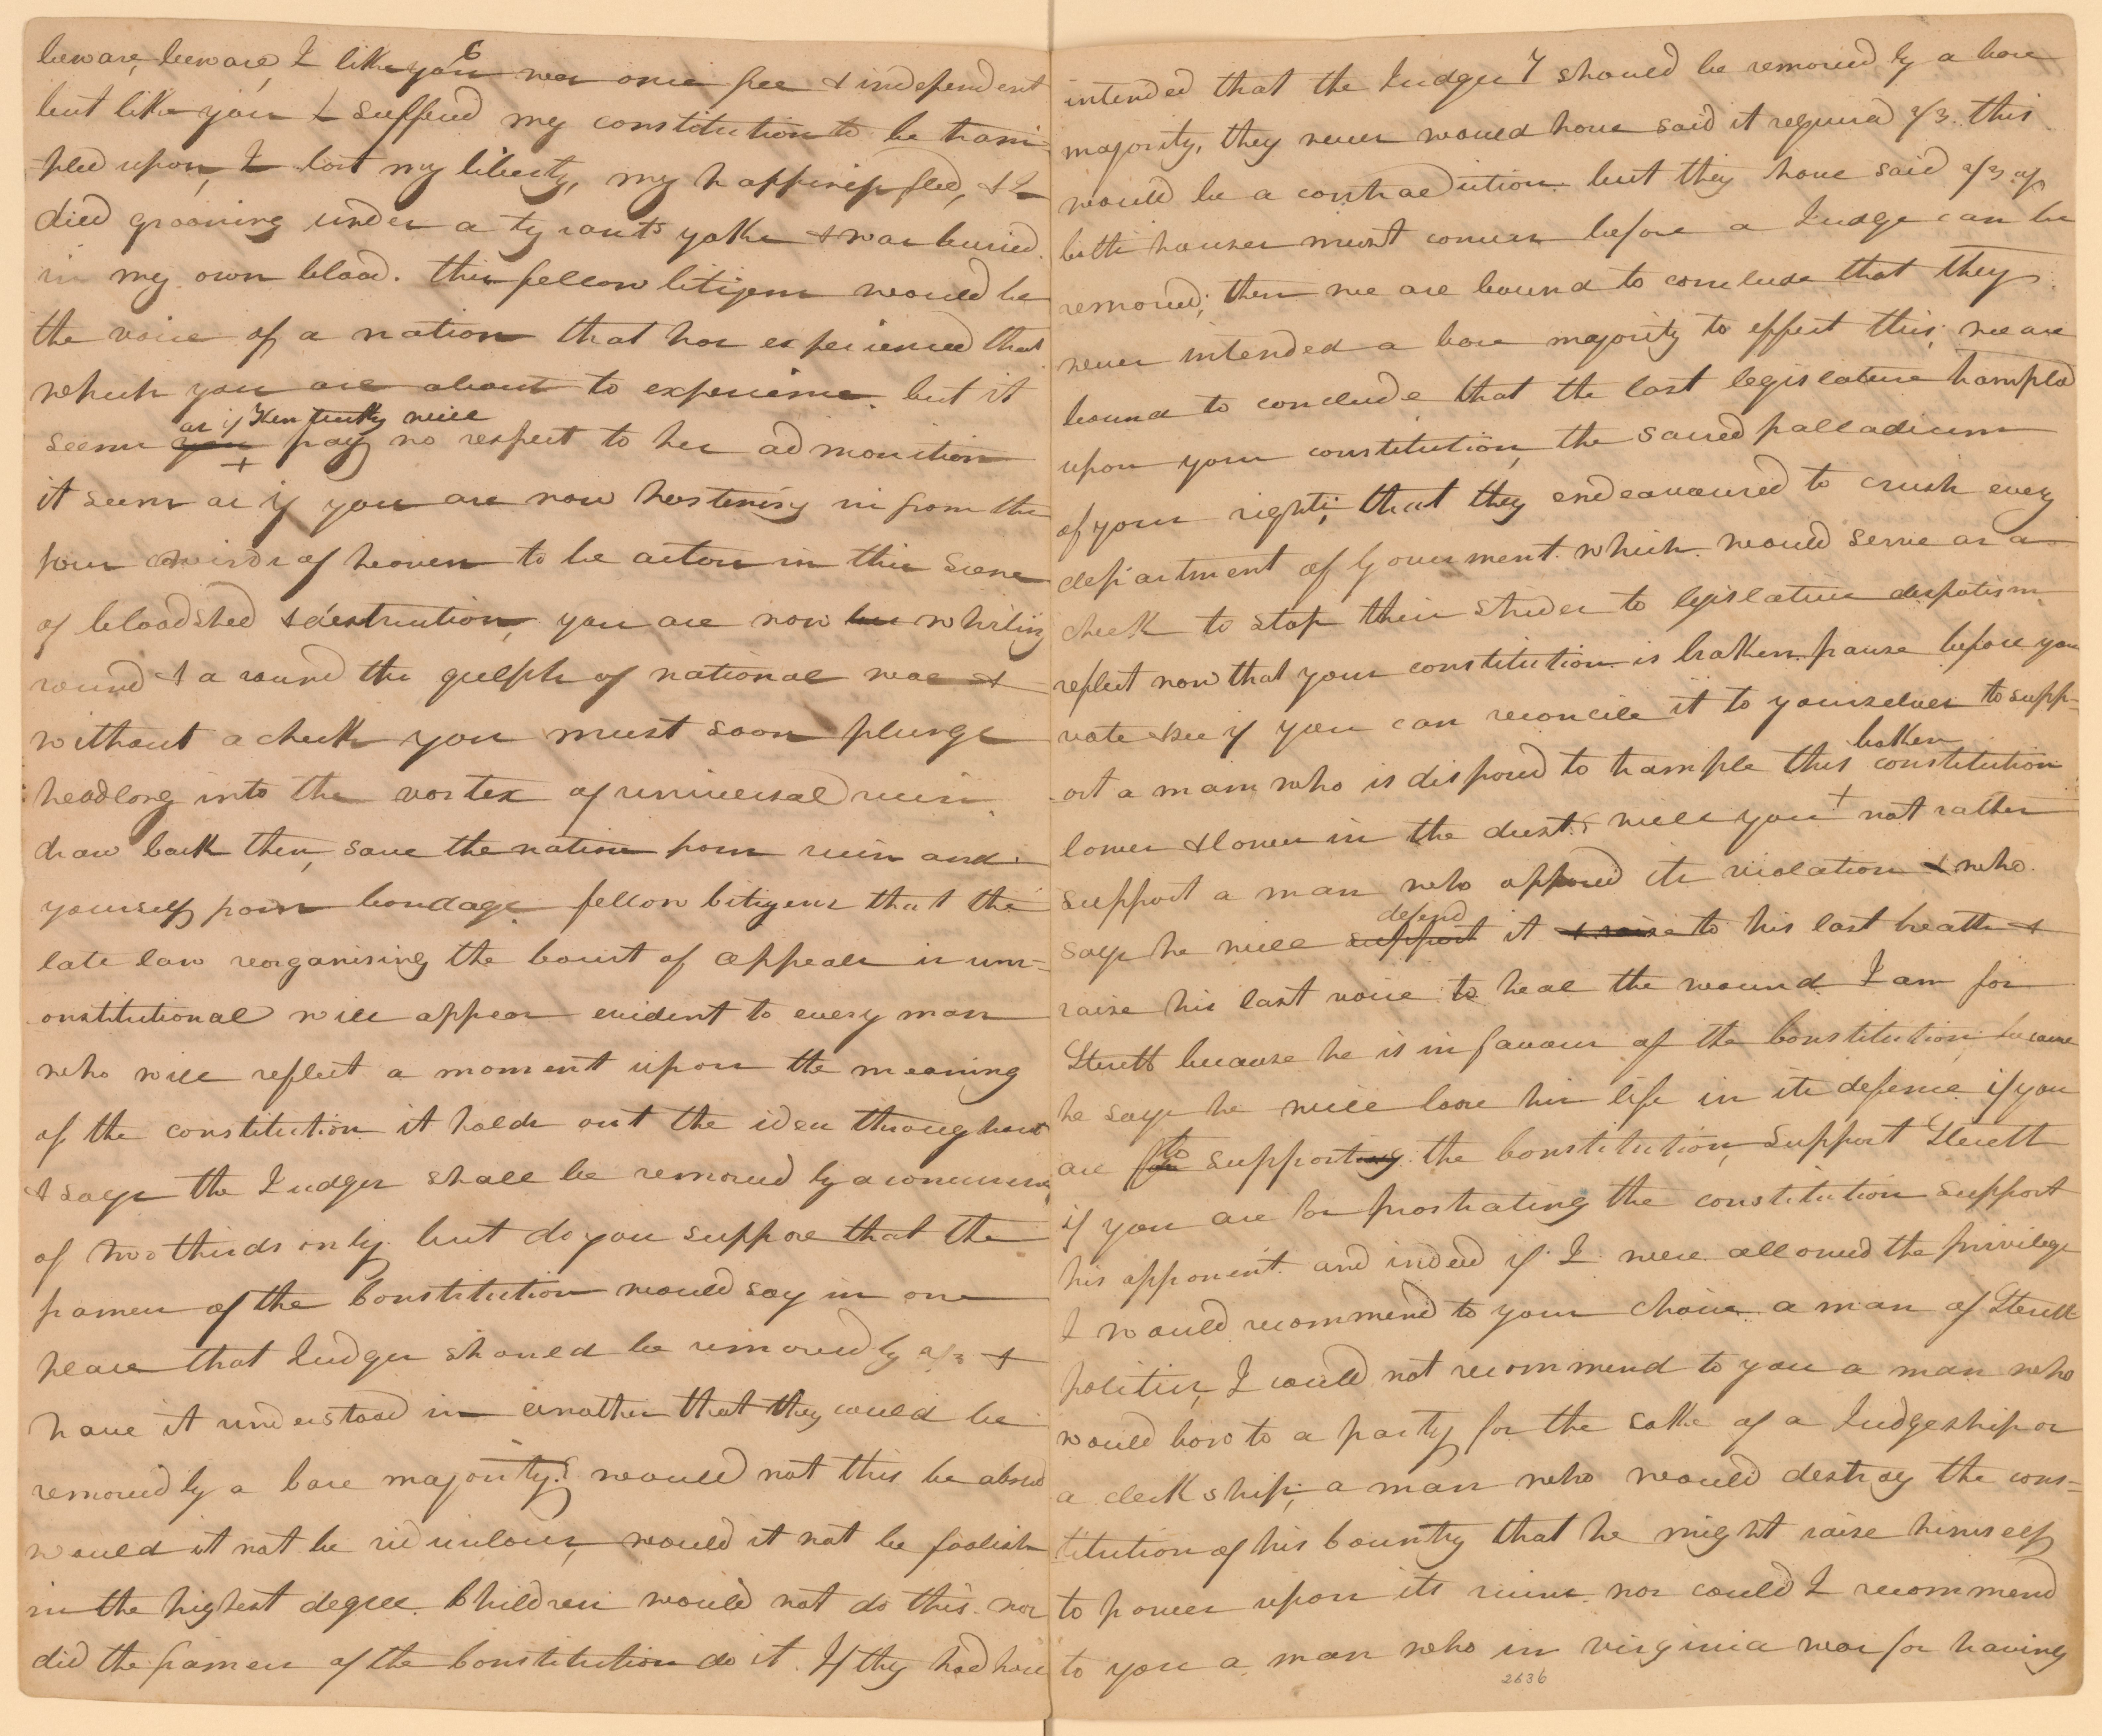 6
beware, beware, I like you was once free & independent
but like you I suffered my constitution to be tram
-pled upon, I lost my liberty, my happiness fled, & I
died groaning under a tyrants yoke & was buried
in my own blood. this fellow citizens would be
the voice of a nation that has experienced that
which you are about to experience. but it
as if Kentucky will
seems you pay no respect to her admonition
+
it seems as if you are now hastening in from the
four winds of heaven to be actors in this scene
of bloodshed & destruction, you are now whirling
round & a round the gulph of national woe &
without a check you must soon plunge
headlong into the vortex of universal ruin
draw back then, save the nation from ruin and
yourself from bondage fellow Citizens that the
late law reorganising the Court of appeals is unc=
onstitutional will appear evident to every man
who will reflect a moment upon the meaning
of the constitution it holds out the idea throughout
& says the Judges shall be removed by a concurrence
of two thirds only. but do you suppose that the
framers of the Constitution would say in one
place that Judges should be removed by 2/3 &
have it understood in another that they could be
removed by a bare majority? would not this be absurd
would it not be ridiculous, would it not be foolish
in the highest degree. Children would not do this. nor
did the framers of the Constitution do it. If they had have
7
intended that the Judges should be removed by a bare
majority, they never would have said it required 2/3. this
would be a contradiction but they have said 2/3 of
both houses must concur before a Judge can be
removed; then we are bound to conclude that they
never intended a bare majority to effect this; we are
bound to conclude that the last legislature trampled
upon your constitution, the sacred palladium
of your rights; that they endeavoured to crush every
department of Government which would serve as a
check to stop their strides to legislative despotism
reflect now that your constitution is broken. pause before you
vote & see if you can reconcile it to yourselves to supp-
broken
-ort a man who is disposed to trample this constitution
+
lower & lower in the dust? will you not rather
support a man who opposed its violation & who
defend
says he will support it & raise to his last breath &
raise his last voice to heal the wound. I am for
Sterett because he is in favour of the Constitution, because
he says he will loose his life in its defence if you
to
are for supporting the Constitution, support Sterett
if you are for prostrating the constitution support
his opponent. and indeed if I were allowed the privilege
I would recommend to your choice a man of Sterett
politics, I could not recommend to you a man who
would bow to a party for the sake of a Judgeship or
a clerkship; a man who would destroy the cons=
titution of his Country that he might raise himself
to power upon its ruins. nor could I recommend
to you a man who in virginia was for having
2636